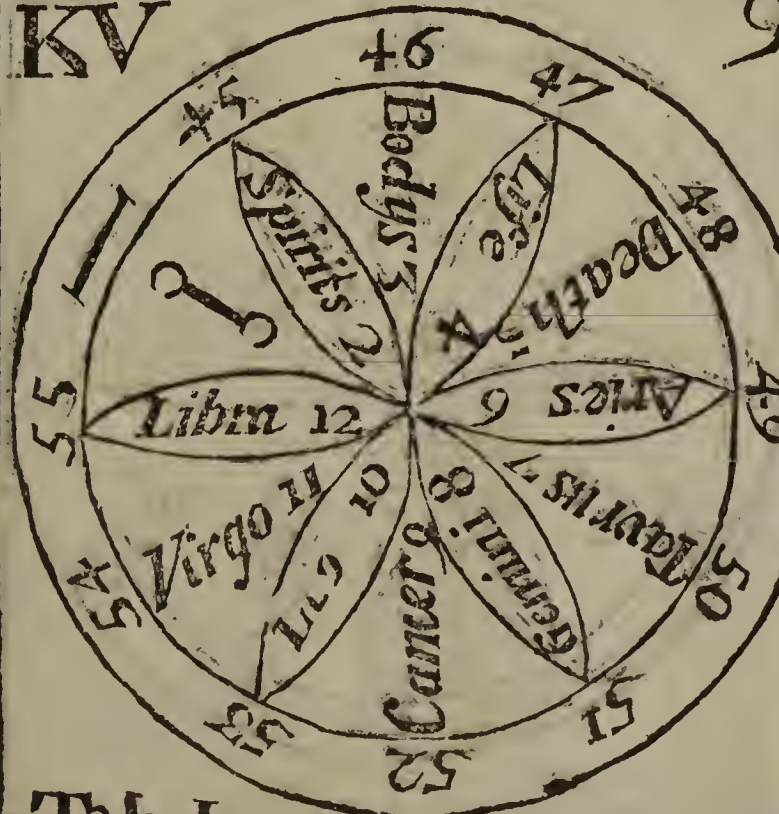 KV
45
46
47
48
49
50
51
52
53
54
55
I
Spirits 2
Bodys 3
Lyfe 4
Death 5
Aries 6
Taurus 7
Gemini 8
Camer 9
10
Virgo 11
Libra 12